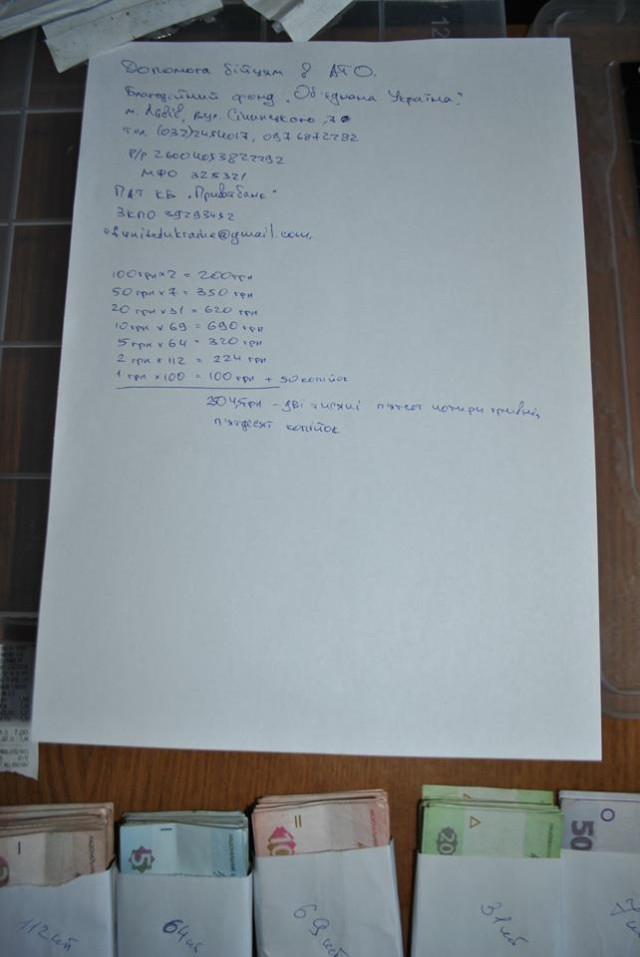 Допомога бійцям в АТО.
Благодійний фонд „Об'єднана Україна".
м. Львів, вул.
тел. (032)2454017, 0976872792
Р/р 26004053822292
МФО 325321
ПАТ КБ „Приватбанк"
ЗКПО 39293492
100 грн x 2 = 200 грн
50 грн x 7 = 350 грн
20 грн x 31 = 620 грн
10 грн x 69 = 690 грн
5 грн x 64 = 320 грн
2 грн x 112 = 224 грн
1 грн x 100 = 100 грн + 50 копійок
грн - дві тисячі п'ятсот чотири гривні
п'ятдесят копійок
5
10
20
50
112 шт
64 шт
69 шт
31 шт